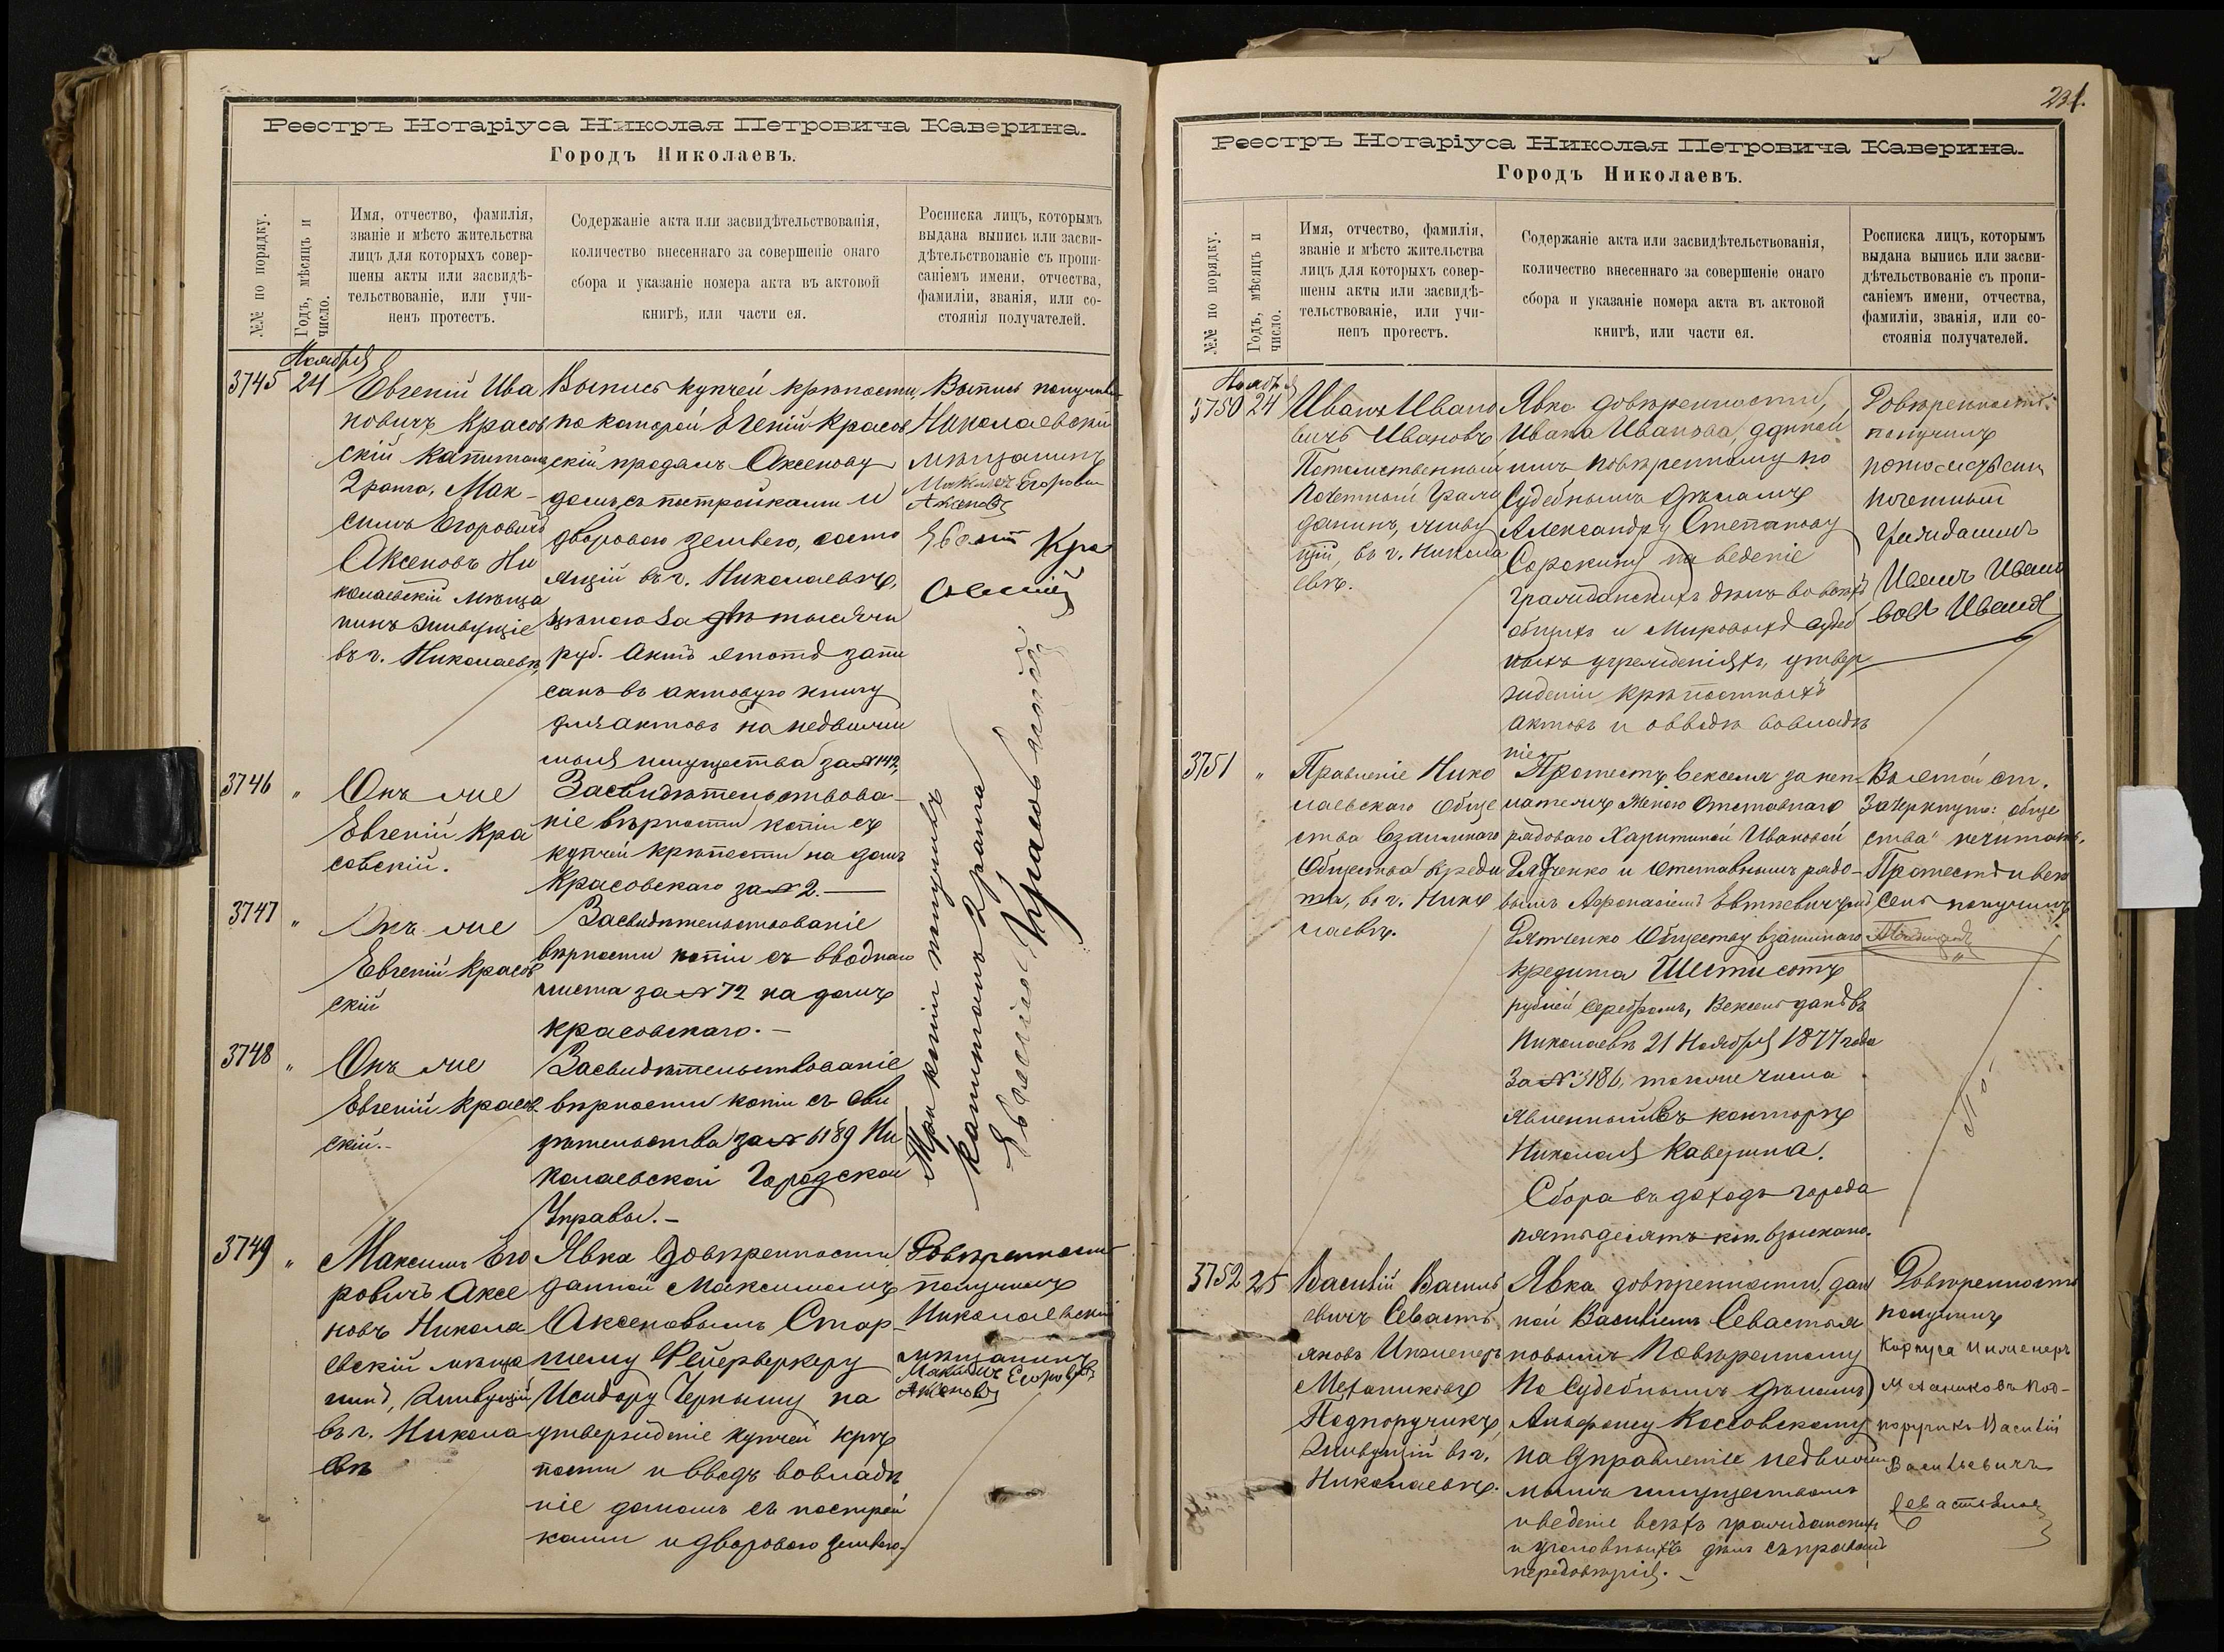 Реестръ Нотаріуса Николая Петровича Каверина.
Городъ Николаевъ.
№№ по порядку.
Годъ, мѣсяцъ и
число.
Имя, отчество, фамилія,
званіе и мѣсто жительства
лицъ для которыхъ совер-
шены акты или засвидѣ-
тельствованіе, или учи-
ненъ протестъ.
Содержаніе акта или засвидѣтельствованія,
количество внесеннаго за совершеніе онаго
сбора и указаніе номера акта въ актовой
книгѣ, или части ея.
Росписка лицъ, которымъ
выдана выпись или засви-
дѣтельствованіе съ пропи-
саніемъ имени, отчества,
фамиліи, званія, или со-
стоянія получателей.
Ноября
3745 24
Евгеній Ива
новичъ Красов
скій Капитанъ
2 ранга, Мак-
симъ Егоровичъ
Аксеновъ Ни
колаевскій мѣща
нинъ живущіе
въ г. Николаевѣ,
Выпись купчей крѣпости,
по которой Евгеній Красов
скій продалъ Аксенову
домъ съ постройками и
дворовою землею, состо
ящій въ г. Николаевѣ,
цѣною за двѣ тысячи
руб. Актъ этотъ запи
санъ въ актовую книгу
для актовъ на недвижи
мыя имущества за № 142,
Выпись получилъ
Николаевскій
мѣщанинъ
Максимъ Егоровъ
Аксеновъ
Евгеній Кра
совскій
3746 "
Онъ же
Евгеній Кра
совскій.
Засвидѣтельствова-
ніе вѣрности копіи съ
купчей крѣпости на домъ
Красовскаго за № 2.
3747 "
Онъ же
Евгеній Красов
скій
Засвидѣтельствованіе
вѣрности копіи съ вводнаго
листа за № 72 на домъ
Красовскаго.-
3748 "
Онъ же
Евгеній Красов
скій.-
Засвидѣтельствованіе
вѣрности копіи съ сви
дѣтельства за № 6189 Ни
колаевской Городской
Управы.-
Три копіи получилъ
капитанъ 2 ранга
Евгеній Красовскій
3749 "
Максимъ Его
ровичъ Аксе
новъ Никола
евскій мѣща
нинъ, живущій
въ г. Никола
евѣ
Явка довѣренности
данной Максимомъ
Аксеновымъ Стар-
шему Фейерверкеру
Исидору Черныму на
утвержденіе купчей крѣ
пости и вводъ во владѣ
ніе домомъ съ построй
ками и дворовою землею.
Довѣренность
получилъ
Николаевскій
мѣщанинъ
Максимъ Егоровъ
Аксеновъ
231.
Реестръ Нотаріуса Николая Петровича Каверина.
Городъ Николаевъ.
№№ по порядку.
Годъ, мѣсяцъ и
число.
Имя, отчество, фамилія,
званіе и мѣсто жительства
лицъ для которыхъ совер-
шены акты или засвидѣ-
тельствованіе, или учи-
ненъ протестъ.
Содержаніе акта или засвидѣтельствованія,
количество внесеннаго за совершеніе онаго
сбора и указаніе номера акта въ актовой
книгѣ, или части ея.
Росписка лицъ, которымъ
выдана выпись или засви-
дѣтельствованіе съ пропи-
саніемъ имени, отчества,
фамиліи, званія, или со-
стоянія получателей.
Ноября
3750 24
Иванъ Ивано
вичъ Ивановъ
Потомственный
Почетный Граж
данинъ, живу
щій въ г. Никола
евѣ.
Явка довѣренности,
Ивана Иванова, данной
имъ повѣренному по
Судебнымъ дѣламъ
Александру Степанову
Сорокину на веденіе
гражданскихъ дѣлъ во всѣхъ
общихъ и Мировыхъ судеб
ныхъ учрежденіяхъ, утвер
жденіи крѣпостныхъ
актовъ и вводѣ во владѣ
ніе.
Довѣренность
получилъ
потомственн
почетный
гражданинъ
Иванъ Ивано
вовъ Ивановъ
3751 "
Правленіе Нико
лаевскаго обще
ства взаимнаго
Общества креди
та, въ г. Нико
лаевѣ.
Протестъ векселя за неп-
латежъ Женою Отставнаго
рядоваго Харитиной Ивановой
Дятченко и отставнымъ рядо-
вымъ Афонасіемъ Евтпевичемъ
Дятченко Обществу взаимнаго
кредита Шестисотъ
рублей серебромъ, Вексель данъ въ
Николаевѣ 21 Ноября 1877 года
За № 3186, того же числа
явленный въ конторѣ
Николая Каверина.
Сбора въ доходъ города
пятьдесятъ коп. взыскано.
Въ этой ст.
зачеркнуто: обще
ства нечитать.
Протестъ и век
сель получилъ
3752 25
Василій Василь
евичъ Севасть
яновъ Инженеръ
Механиковъ
Подпоручикъ,
живущій въ г.
Николаевѣ.
Явка довѣренности, дан
ной Василіемъ Севастья
новымъ Повѣренному
по Судебнымъ дѣламъ
Альфонсу Коссовскому
на управленіе недвижи
мымъ имуществомъ
и веденіе всѣхъ гражданскихъ
и уголовныхъ дѣлъ съ правомъ
передовѣрія.-
Довѣренность
получилъ
Корпуса Инженеръ
Механиковъ Под-
поручикъ Василій
Васильевичъ
Севастьяновъ